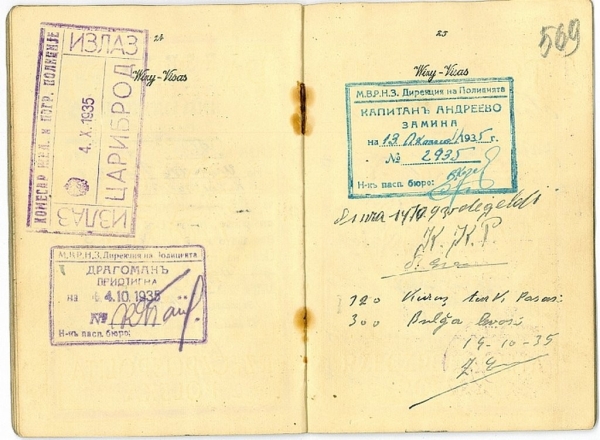 24
Wizy-Visas
КОМЕСАР ЖЕЛ. И ПОГР. ПОЛИЦИЈЕ
ИЗЛАЗ
4. X. 1935
ЦАРИБРОД
ИЗЛАЗ
М.В.Р.Н.З. Дирекция на Полицията
ДРАГОМАНЪ
ПРИСТИГНА
на 4.10.1935
№
Н-къ пасп. бюро:
25
569
Wizy-Visas
М.В.Р.Н.З. Дирекция на Полицията
КАПИТАНЪ АНДРЕЕВО
ЗАМИНА
на 13 1935 г.
№ 2935
Н-къ пасп. бюро:
geldi
K. K. P.
320 Kuruş
300 Bulğa
15-10-35